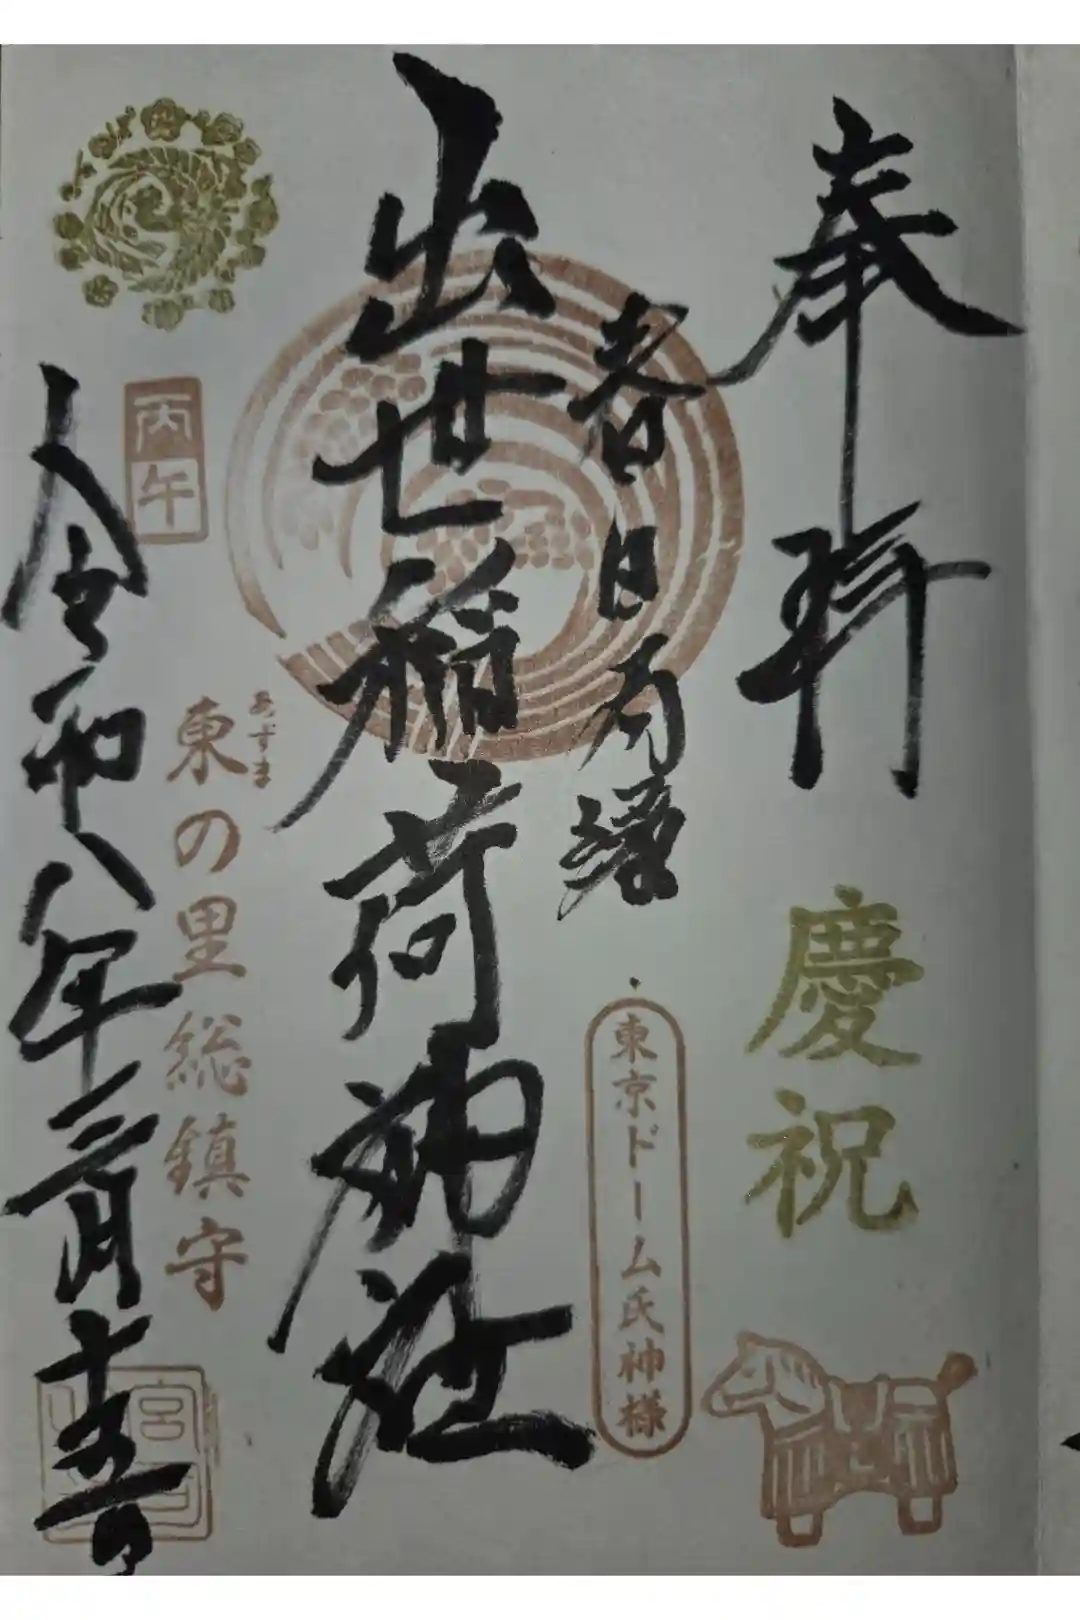 奉拝
慶祝
春日局縁
東京ドーム氏神様
出世稲荷神社
丙午
あずま
東の里総鎮守
令和八年二月十五日